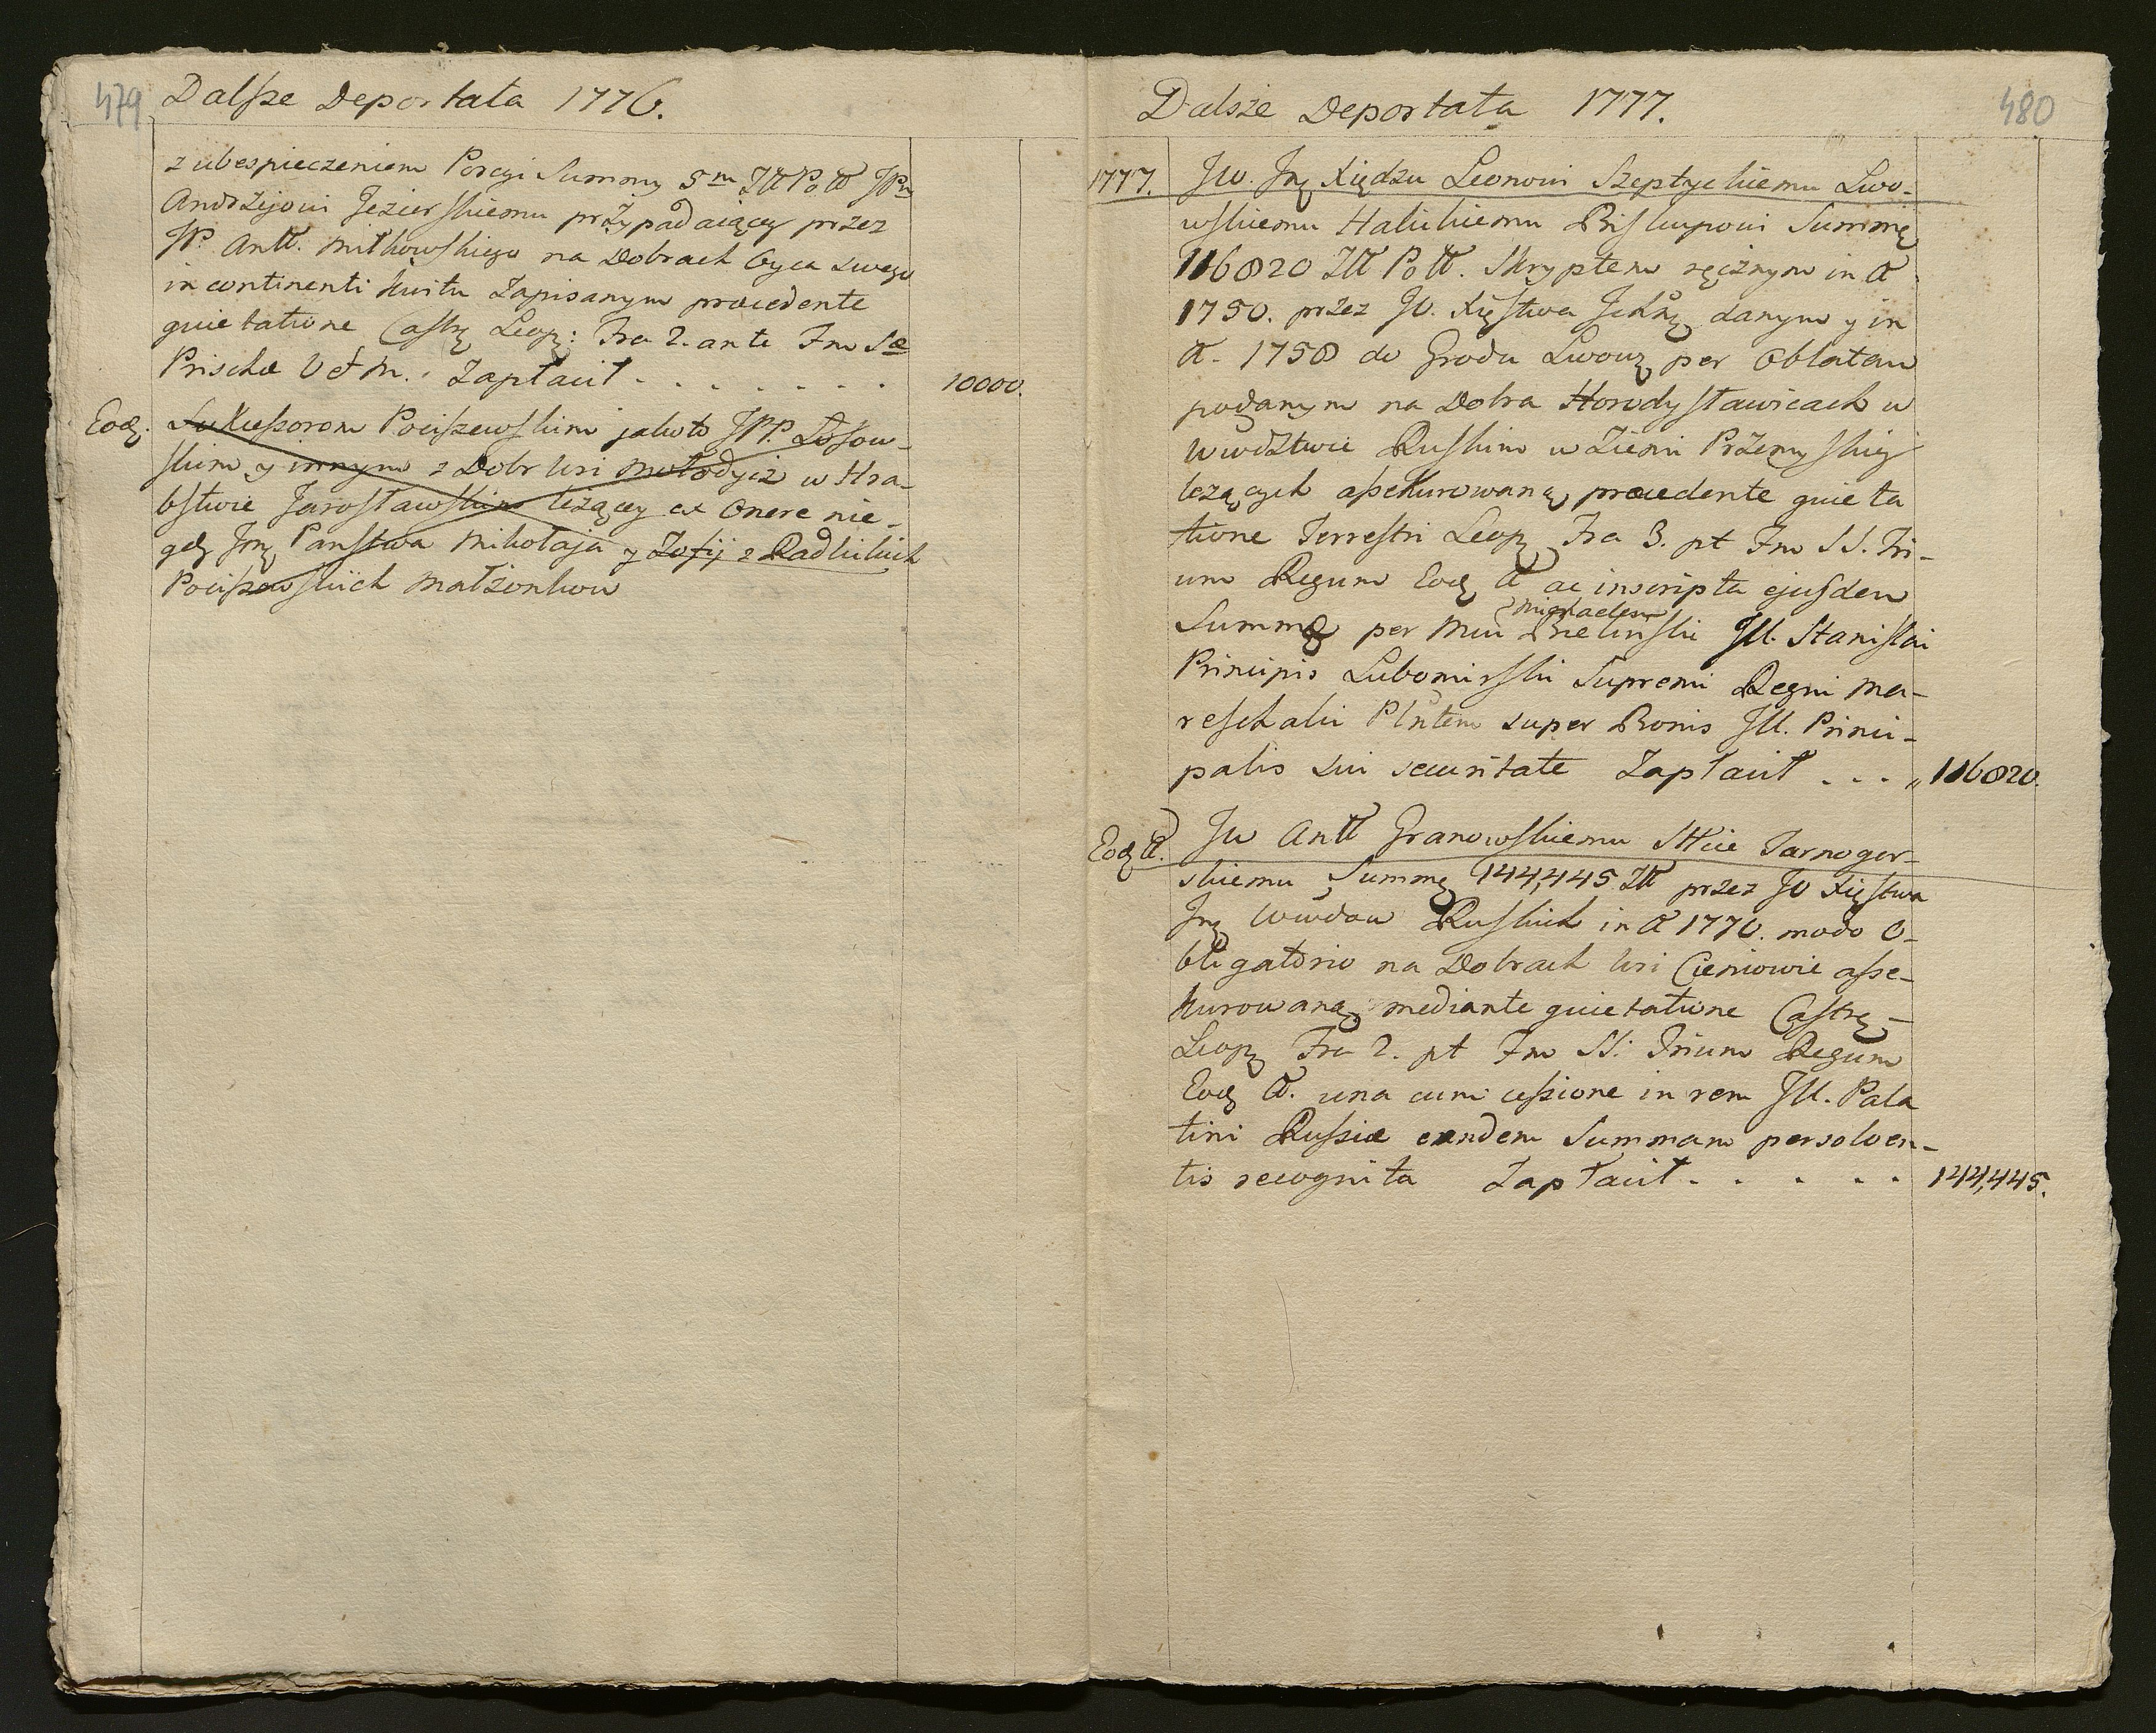 479 Dalsze Deportata 1776.
z ubespieczeniem Porcyi Summy 5m Złł Poll JPu
Andrzejowi Jezierskiemu przypadaiącey przez
JP. Antt. Mitkowskiego na Dobrach Oyca swego
in continenti kwitu Zapisanym procedente
quietatione Castr. Leop: Fra 2. ante Fm Sæ
Priscæ V et M. Zapłacił . . . . . . . . 10000.
Eod. Sukcessorom Pociszewskim jako to JPP.
skim y innym z Dobr wsi Mołodycz w Hra-
bstwie Jarosławskim leżącey ex Onere nie-
gdy Jmę Panstwa Mikołaja y Zofij z Radlickich
Pociszewskiich Małżonkow
Dalsze Deportata 1777. 480
1777. JW. Jmę Xiędzu Leonowi Szeptyckiemu Lwo-
wskiemu Halickiemu Biskupowi Summę
116820 Złł Poll. Skryptem ręcznym in A
1750. przez JO. Xięstwa Ichmę danym y in
A. 1758 do Grodu Lwow. per Oblatam
podanym na Dobra Horodysławicach w
Wwdztwie Ruskim w Ziemi Przemyskiey
leżących assekurowaną procedente quieta
tione Terrestri Leop. Fra 3. pt Fm SS. Tri-
um Regum Eod. A ac inscripta ejusdem
Michaelem
Summæ per Mm Bielinski Jll. Stanislai
Principis Lubomirski Supremi Regni Ma-
reschalci Plntem super Bonis Jll. Princi-
palis sui securitate Zapłacił . . . " 116820.
Eod. A. JW Antt Granowskiemu Sttcie Tarnogor-
skiemu Summę 144,445 Złł przez JO Xięstwa
Jmę Wwdow Ruskich in A 1776. modo O-
bligatorio na Dobrach wsi Cieniowie asse-
kurowaną mediante quietatione Castr.
Leop. Fra 2. pt Fm SS. Trium Regum
Eod. A. una cum cessione in rem Jll. Pala
tini Russiæ eandem Summam persolven-
tis recognita Zapłacił . . . . . 144,445.